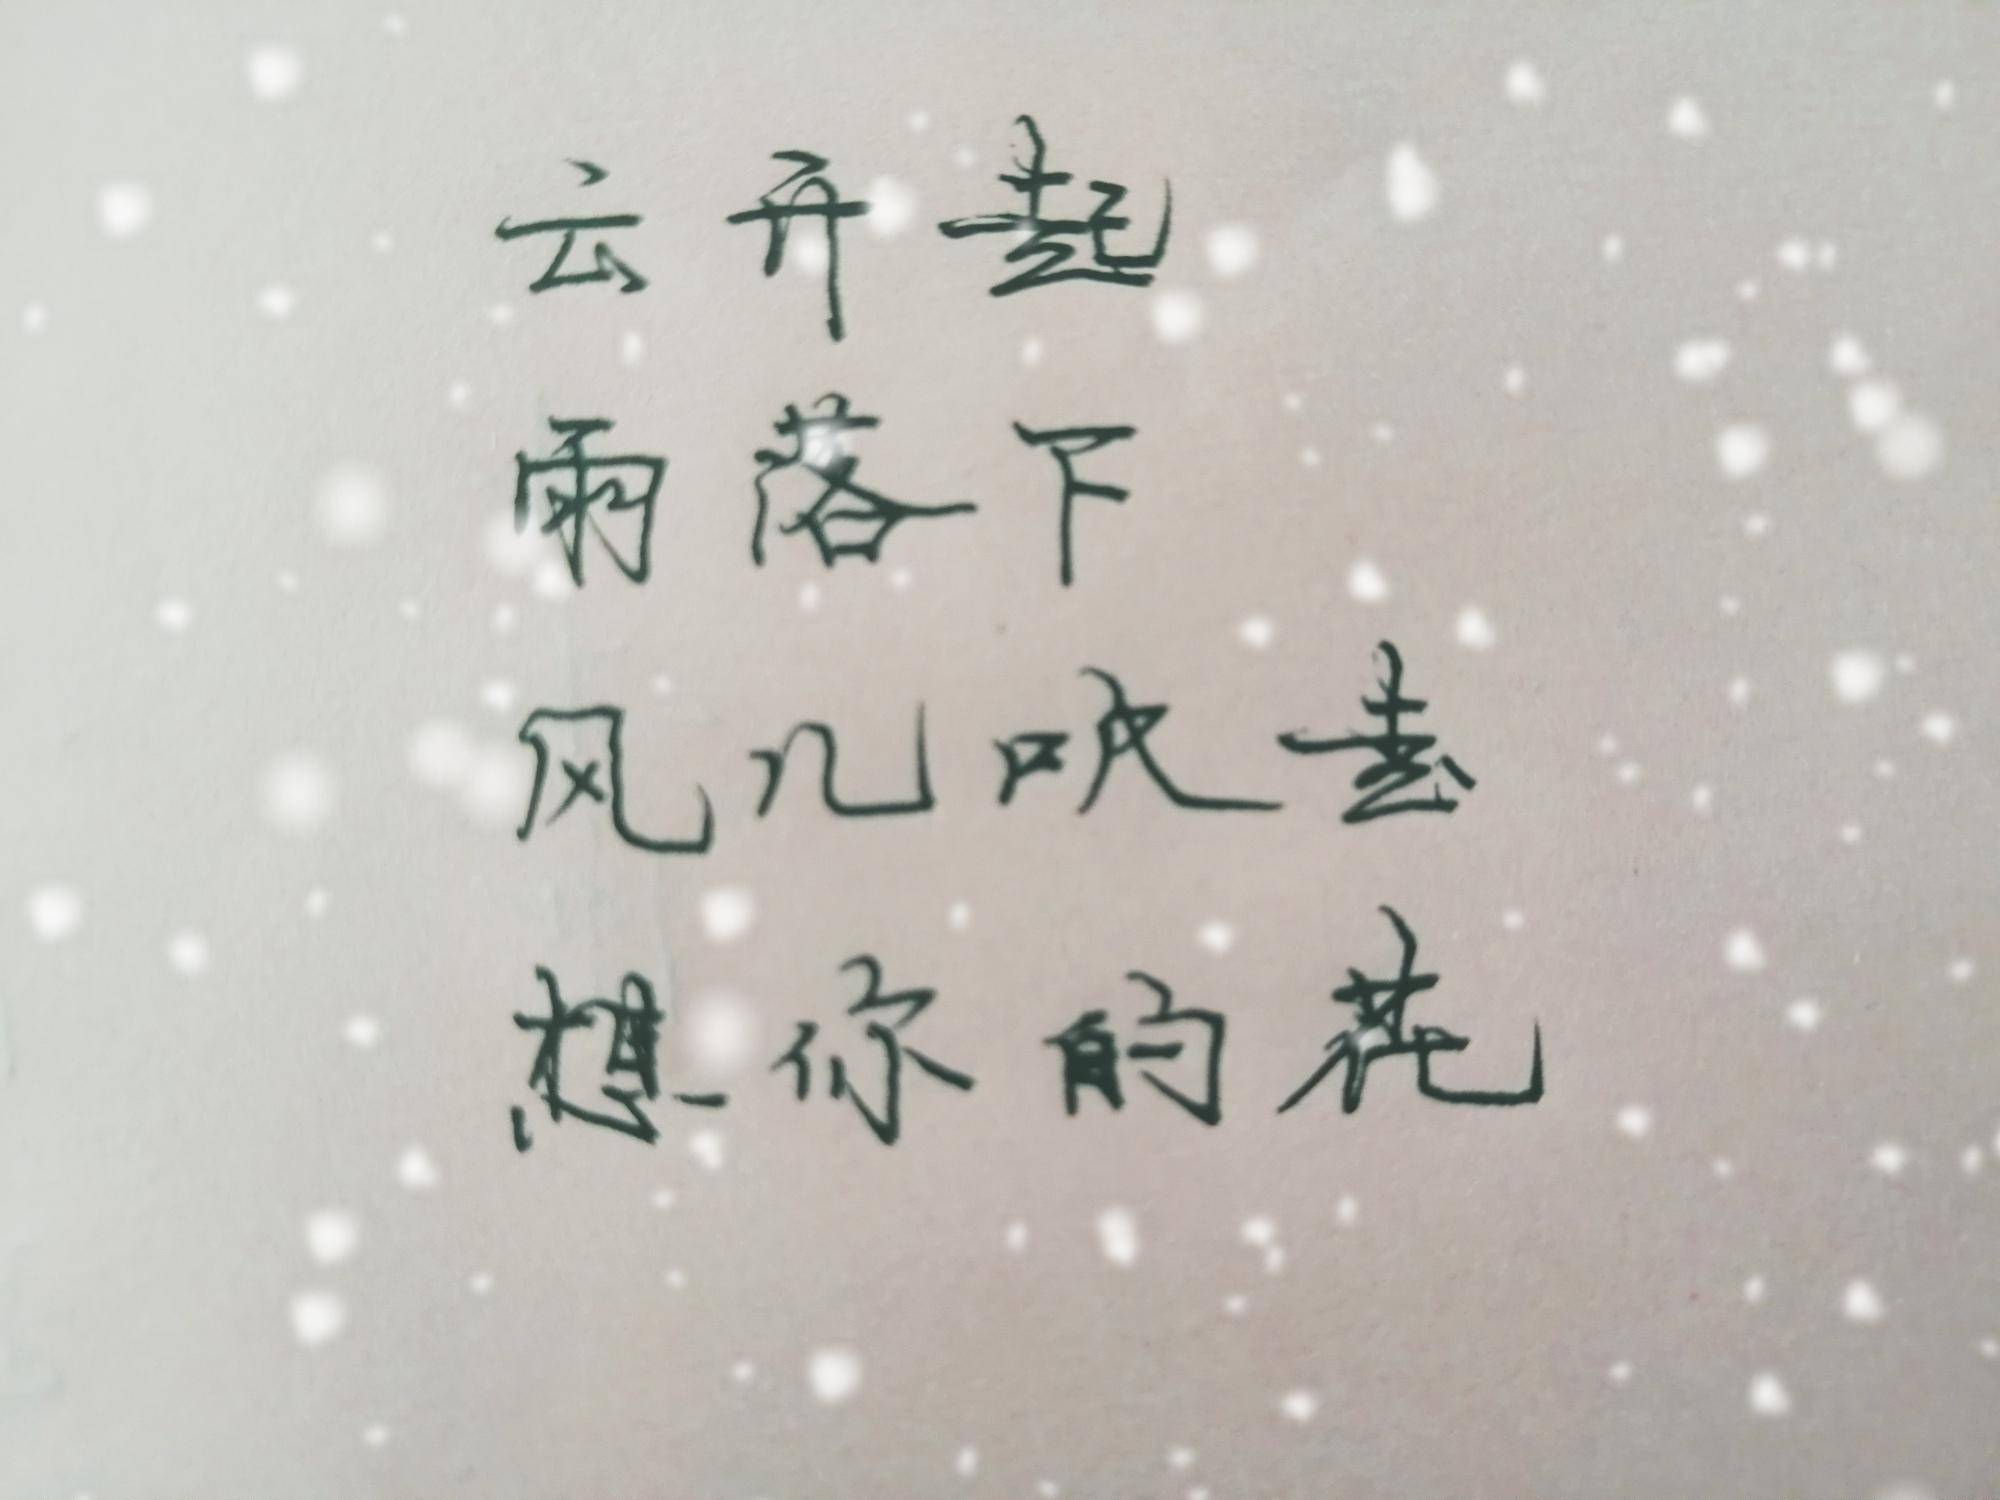 云开起
雨落下
风儿吹去
想你的花